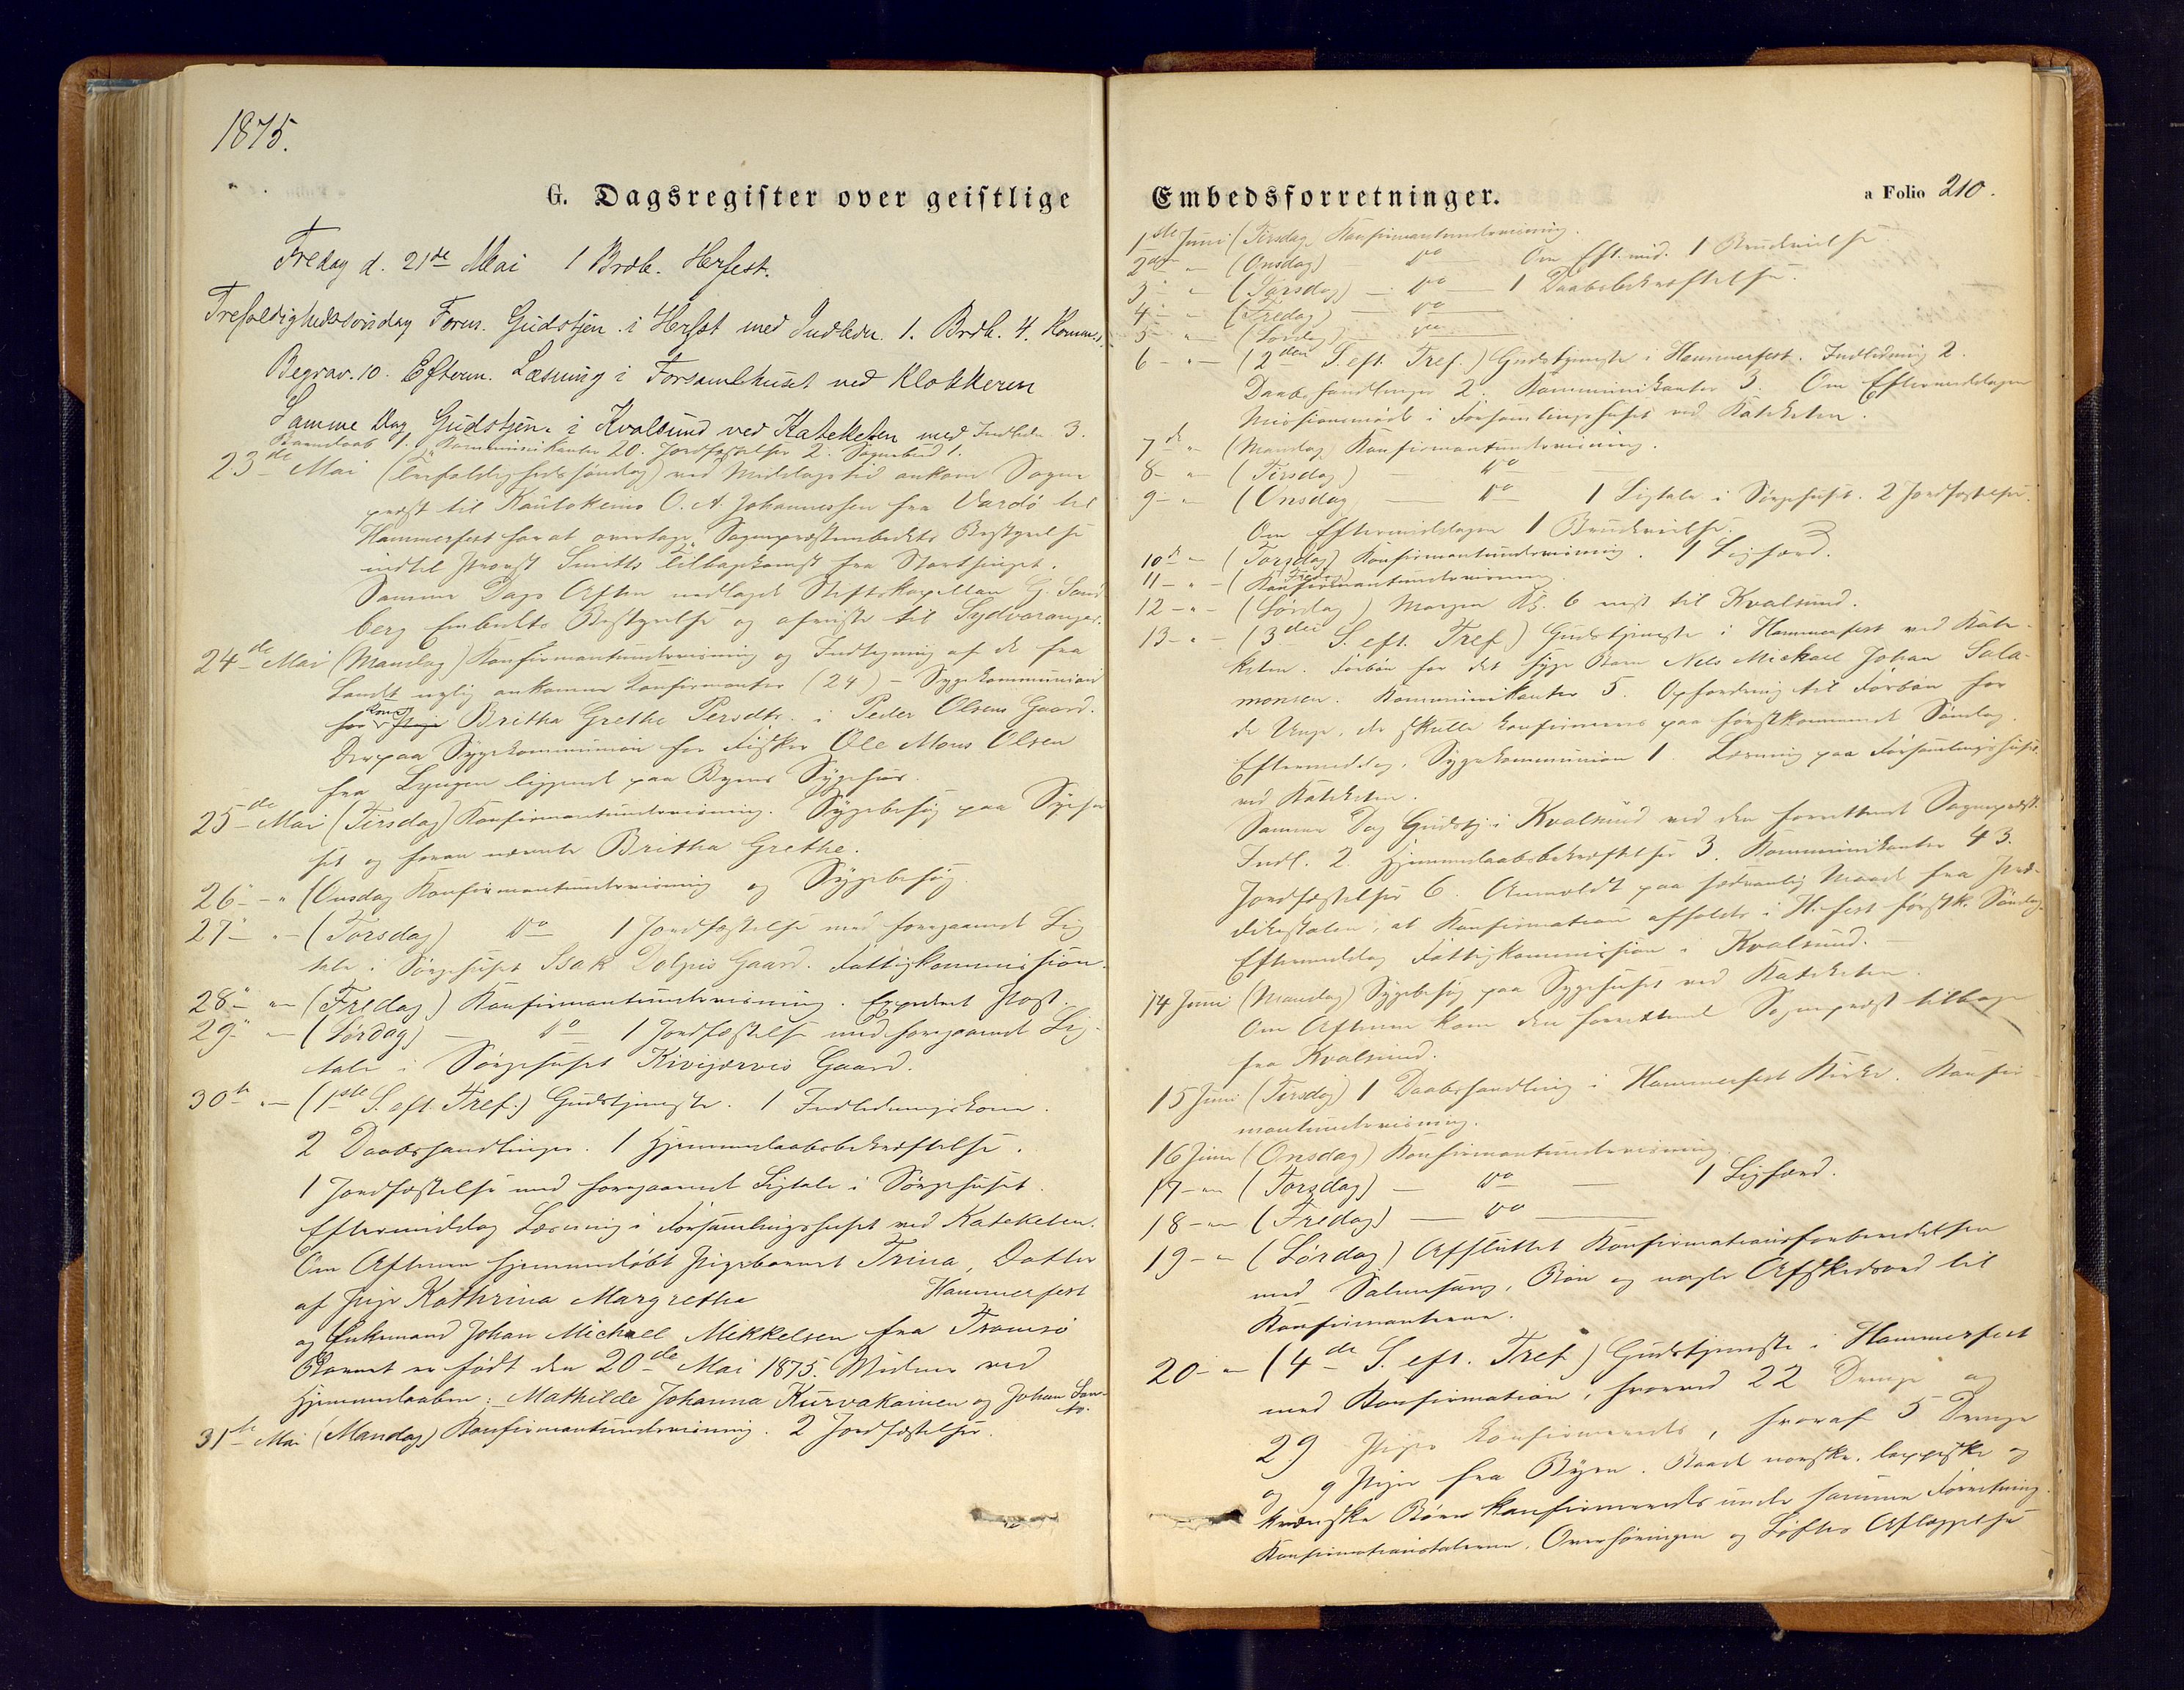 1875.
G. Dagsregister over geistlige
Fredag d. 21de Mai 1 Brdb. Herfest.
Trefoldighedssøndag Form. Gudstjen. i Hrfst med Indledn. 1. Brdb. 4. Komm.
Begrav. 10. Efterm. Læsning i Forsamlhuset ved Klokkeren
Samme Dag Gudstjen. i Kvalsund ved Kateketen med Indledn. 3.
Barnedaab 1. Kommunikanter 20. Jordfæstelser 2. Sognebud 1.
23de Mai (Trefoldighedssøndag) ved Middagstid ankom Sogne
præst til Kautokeino O. A. Johannessen fra Vardö til
Hammerfest for at overtage Sognepræstembedets Bestyrelse
indtil Provst Smitts Tilbagekomst fra Storthinget.
Samme Dags Aften nedlagde Stiftskapellan G. Sand
berg Embedets Bestyrelse og afreiste til Sydvaranger.
24de Mai (Mandag) Konfirmantundervisning og Indtegning af de fra
Landet nylig ankomne Konfirmanter (24) – Sygekommunion
for Kone Pige Britha Grethe Persdtr. i Peder Olsens Gaard.
Derpaa Sygekommunion for Fisker Ole Mons Olsen
fra Lyngen liggende paa Byens Sygehus.
25de Mai (Tirsdag) Konfirmantundervisning. Sygebesøg paa Sygehu
set og foran nævnte Britha Grethe.
26 – " (Onsdag Konfirmantundervisning og Sygebesøg.
27 " – (Torsdag) do 1 Jordfæstelse med foregaaende Lig
tale i Sørgehuset Isak Dolpis Gaard. Fattigkommission.
28 " – (Fredag) Konfirmantundervisning. Expederet Post.
29 " – (Lørdag) – do 1 Jordfæstelse med foregaaende Lig-
tale i Sørgehuset Kivijervis Gaard.
30te " – (1ste S. eft. Tref.) Gudstjeneste. 1 Indledningskone.
2 Daabshandlinger. 1 Hjemmedaabsbekræftelse.
1 Jordfæstelse med foregaaende Ligtale i Sørgehuset.
Eftermiddag Læsning i Forsamlingshuset ved Kateketen.
Om Aftenen hjemmedøbt Pigebarnet Trina, Datter
af Pige Kathrina Margrethe Hammerfest
og Enkemand Johan Michael Mikkelsen fra Tromsö
Barnet er født den 20de Mai 1875. Vidner ved
Hjemmedaaben: Mathilde Johanna Kurvakainen og Johan
31te Mai (Mandag) Konfirmantundervisning. 2 Jordfæstelser.
Embedsforretninger.
a Folio 210.
1ste Juni (Tirsdag) Konfirmantundervisning.
2den – (Onsdag) do Om Eft.mid. 1 Brudevielse
3 – " (Torsdag) – do – 1 Daabsbekræftelse.
4 – " (Fredag) – do
5 – " (Lørdag) – do
6 – " – (2den S. eft. Tref.) Gudstjeneste i Hammerfest. Indledning 2.
Daabshandlinger 2. Kommunikanter 3. Om Eftermiddagen
Missionsmøde i Forsamlingshuset ved Kateketen.
7de " (Mandag) Konfirmantundervisning.
8 – " (Tirsdag) do
9 – " (Onsdag – do 1 Ligtale i Sørgehuset. 2 Jordfæstelser.
Om Eftermiddagen 1 Brudevielse.
10de – (Torsdag) Konfirmantundervisning. 1 Ligfærd.
11 – " – (Fredag) Konfirmantundervisning.
12 – " – (Lørdag) Morgen Kl. 6 reist til Kvalsund.
13 – " – (3die S. eft. Tref.) Gudstjeneste i Hammerfest ved Kate-
keten. Forbøn for det syge Barn Nils Mickael Johan Sala-
monsen. Kommunikanter 5. Opfordring til Forbøn for
de Unge, der skulle konfirmeres paa førstkommende Søndag.
Eftermiddag. Sygekommunion 1. Læsning paa Forsamlingshuset
ved Kateketen.
Samme Dag Gudstj. i Kvalsund ved den forrettende Sognepræst.
Indl. 2. Hjemmedaabsbekræftelser 3. Kommunikanter 43.
Jordfæstelser 6. Anmeldt paa sædvanlig Maade fra Præ-
dikestolen, at Konfirmation afholdes i H.fest førstk. Søndag.
Eftermiddag Fattigkommission i Kvalsund. –
14 Juni (Mandag) Sygebesøg paa Sygehuset ved Kateketen.
Om Aftenen kom den forrettende Sognepræst tilbage
fra Kvalsund.
15 Juni (Tirsdag) 1 Daabshandling i Hammerfest Kirke. Konfir-
mantundervisning.
16 Juni (Onsdag) Konfirmantundervisning.
17 – " (Torsdag) – do – 1 Ligfærd.
18 – " (Fredag) – do –
19 – " (Lørdag) Afsluttet Konfirmationsforberedelsen
med Salmesang, Bøn og nogle Afskedsord til
Konfirmanterne.
20 – " (4de S. eft. Tref.) Gudstjeneste i Hammerfest
med Konfirmation, hvorved 22 Drenge og
29 Piger konfirmeredes, hvoraf 5 Drenge
og 9 Piger fra Byen. Baade norske, lappiske og
kvænske Børn konfirmeredes under samme Forretning.
Konfirmationstalerne, Overhøringen og Løftes Aflæggelse